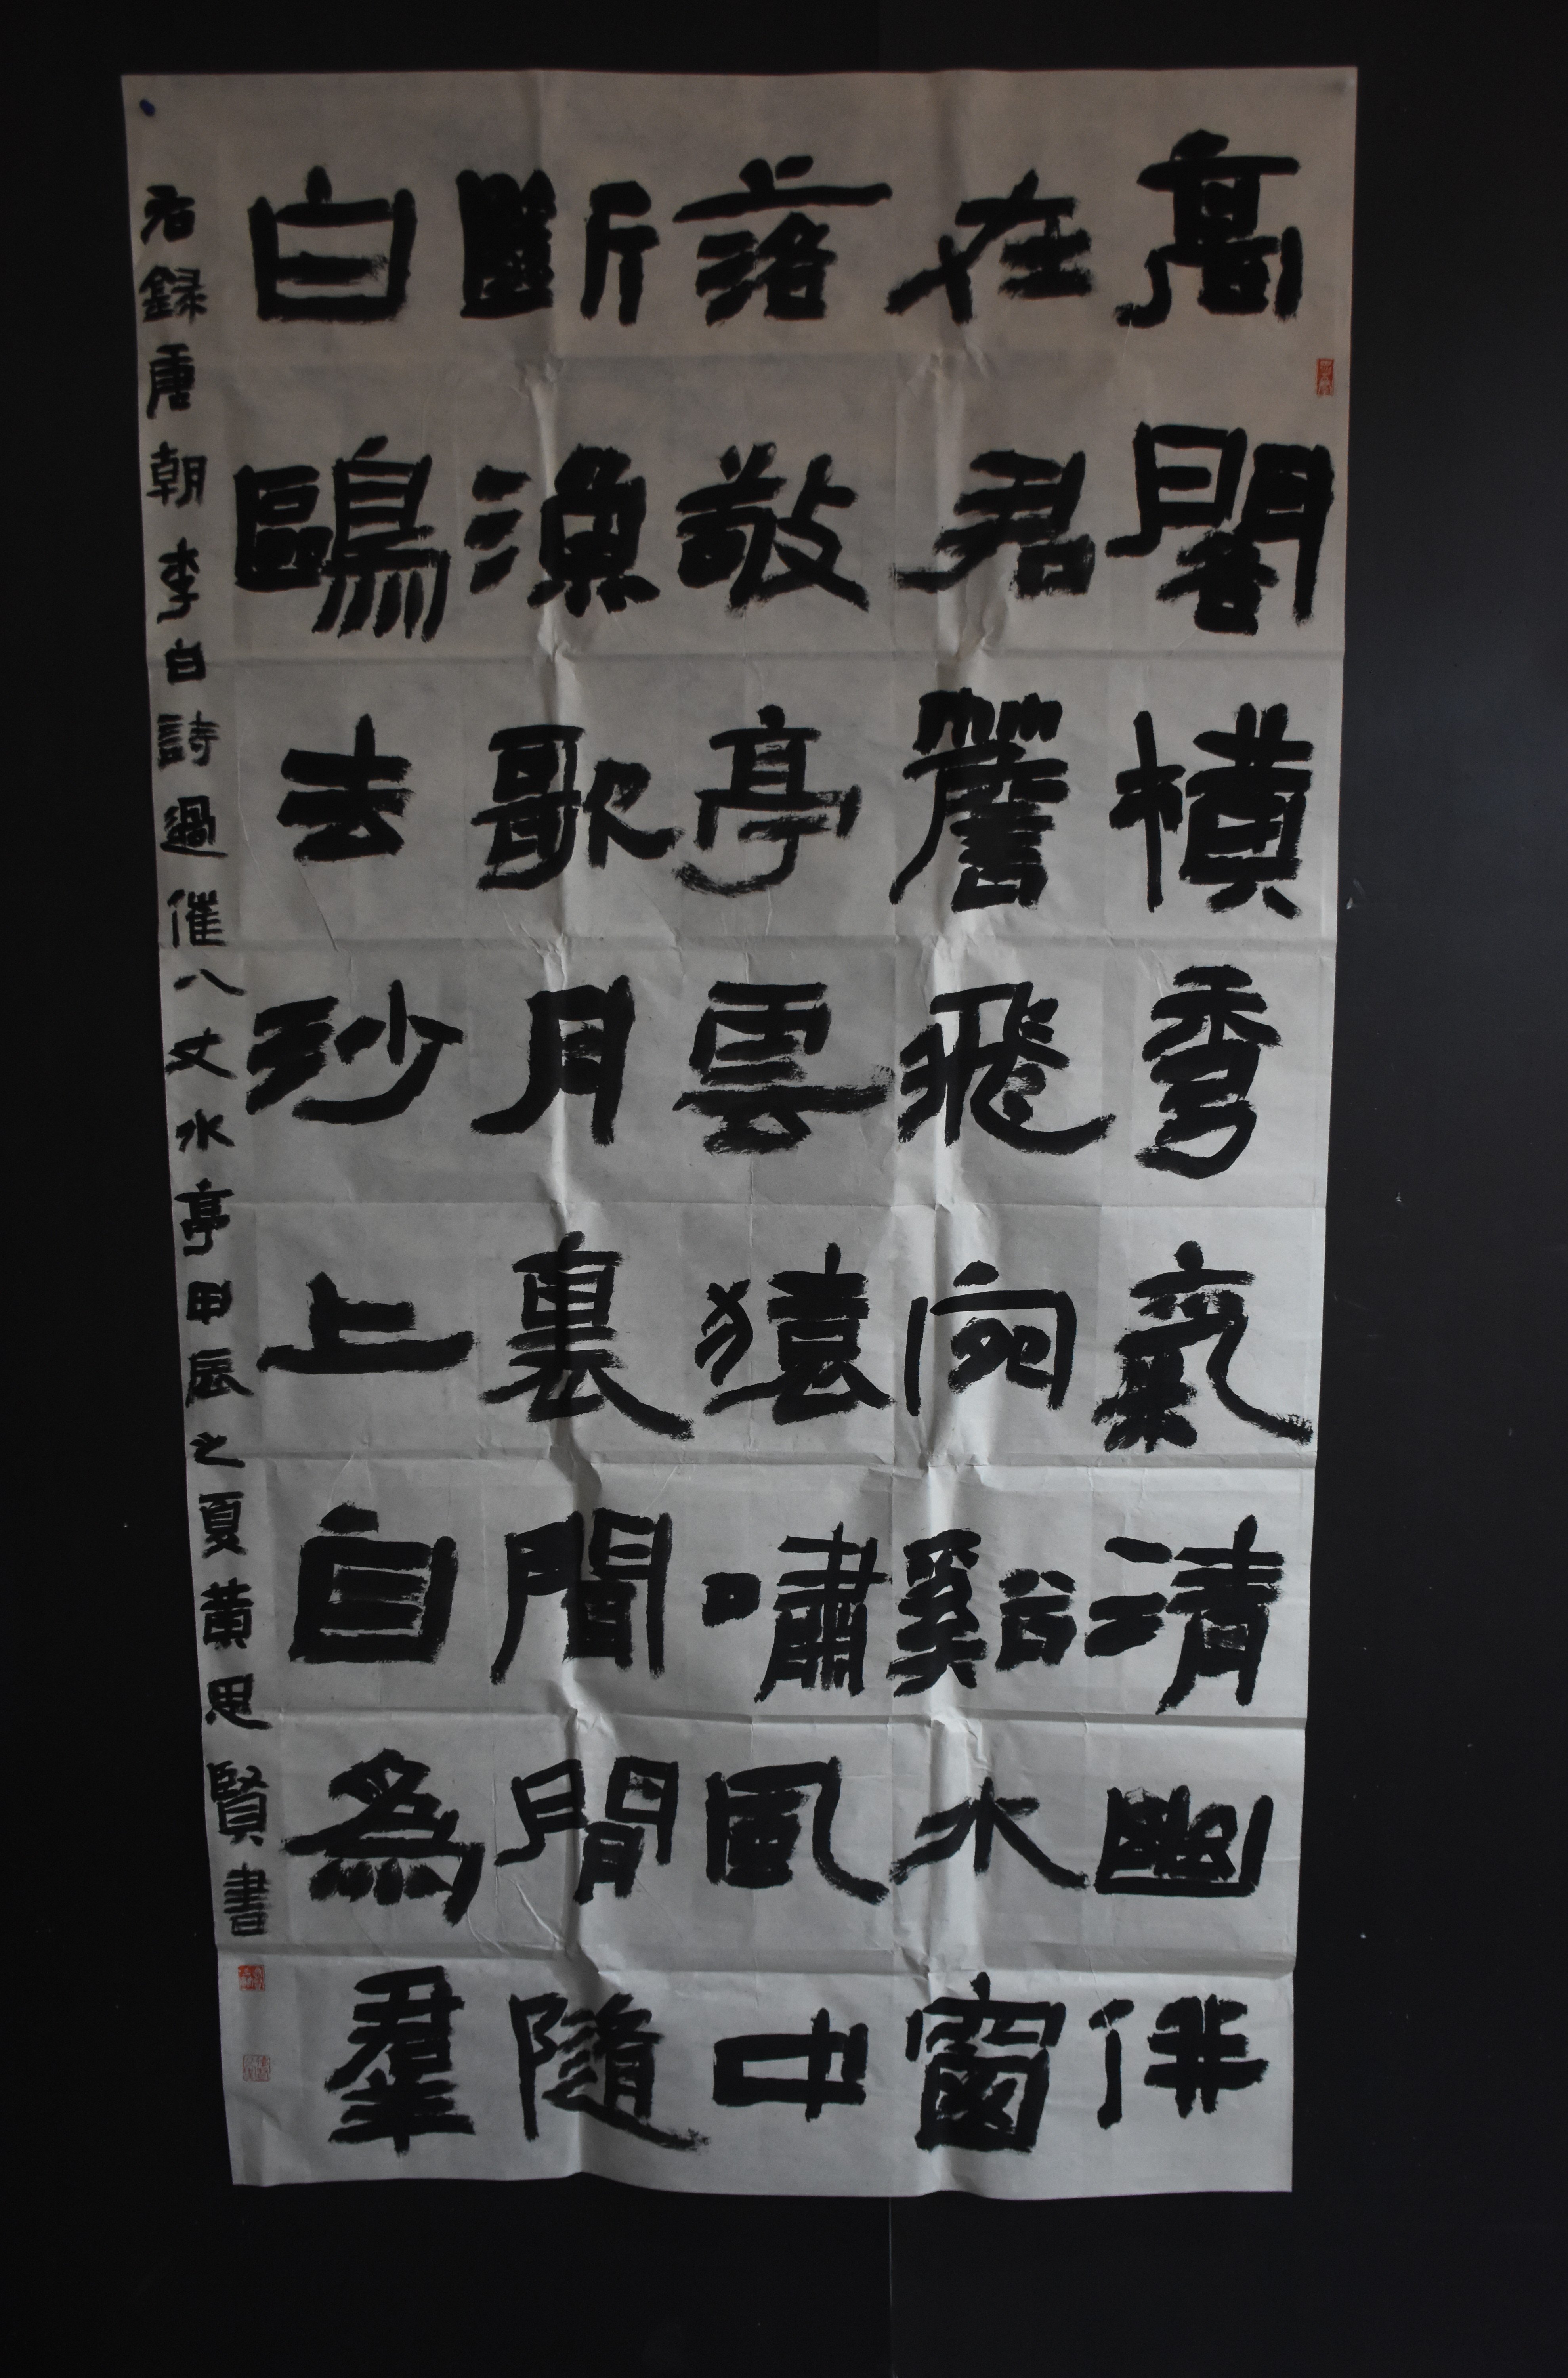 高閣橫秀氣清幽併
在君簷飛宛谿水窗
落敬亭雲猿嘯風中
斷漁歌月裏聞閒隨
白鷗去沙上自爲羣
右録唐朝李白詩過催八丈水亭甲辰之夏黃思賢書